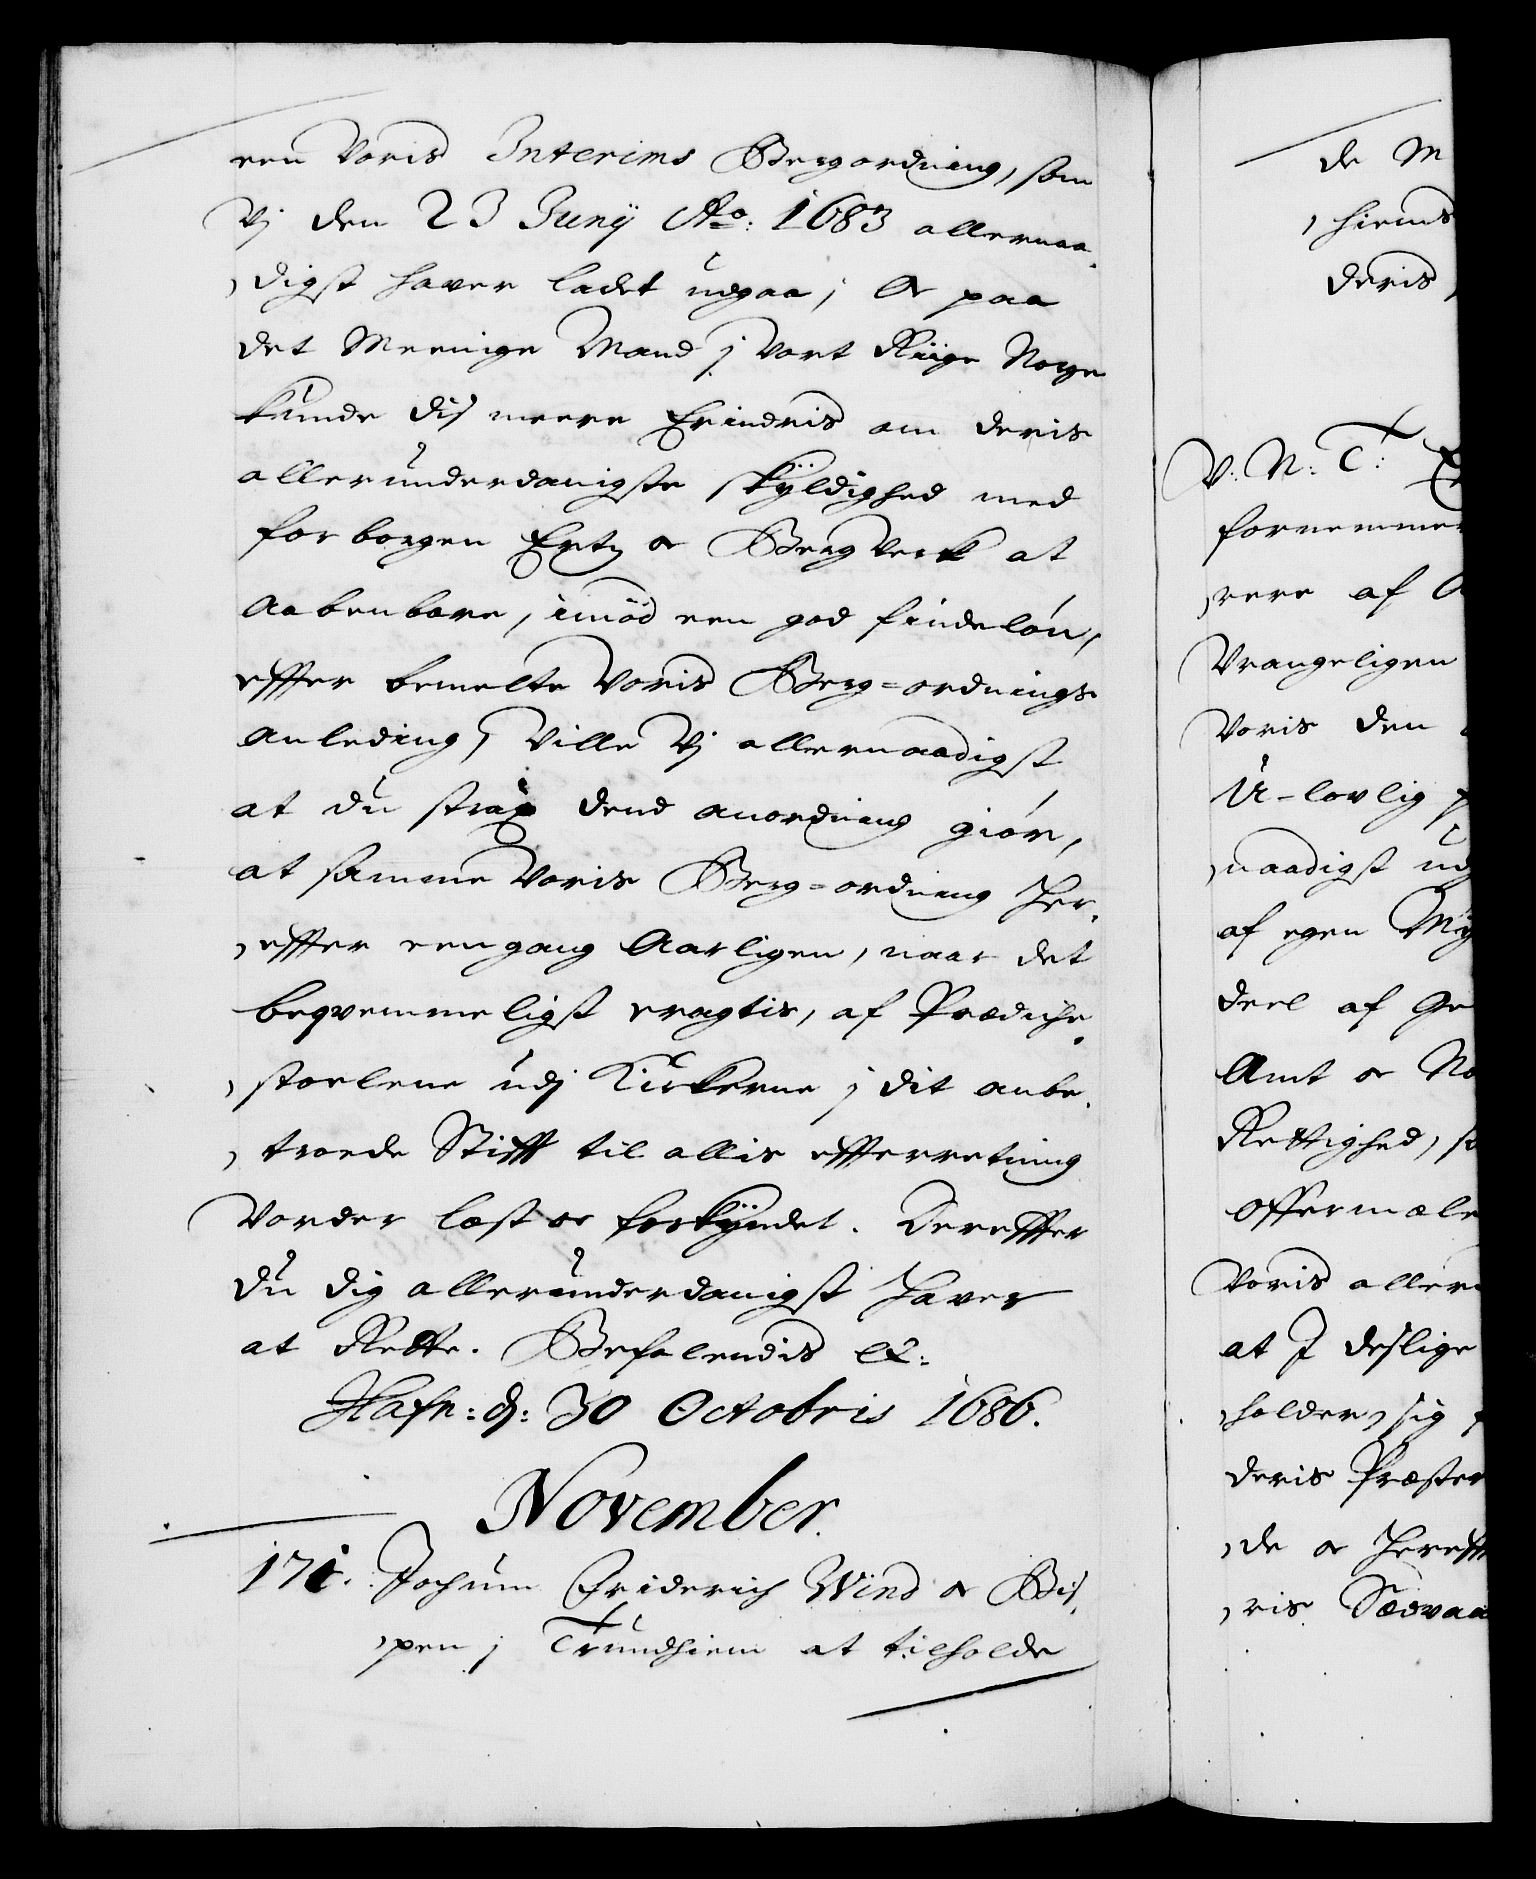 een Voris Interims Bergordning, som
Vj den 23 Junij Ao: 1683 allernaa-
digst hafver ladet udgaa; Oc paa
det Meenige Mand j Vort Riige Norge
kunde dis meere Erindris om deris
allerunderdanigste skÿldighed med
forborgen Ertz oc Bergverk at
Aabenbare, imod een god findelön,
effter bemelte Voris Berg=ordnings
Anleding, Ville Vj allernaadigst
at du strax dend anordning giör,
at samme Voris Berg=ordning her-
effter eengang Aarligen, naar det
beqvemmeligst eragtis, af Prædiche-
stoelene udj Kirkerne j dit anbe-
troede Stifft til allis effterretning
Vorder læst oc forkÿndet. Dereffter
du dig allerunderdanigst haver
at Rette. Befalendis etc:
Hafn: d: 30 Octobris 1686.
November.
171. Jochum Friderich Wind oc Bis-
pen j Trundhiem at tilholde
de M
hiems
deris
V. N. T:
fornemmer
rere af
Vrangeligen
Voris den
U-lovlig
naadigst ud
af egen My
deel af Ge
Amt oc No
Rettighed, so
Offermæle
Voris aller
at J deslige
holder, sig
deris Præster
de oc hereff
ris Sædvaa